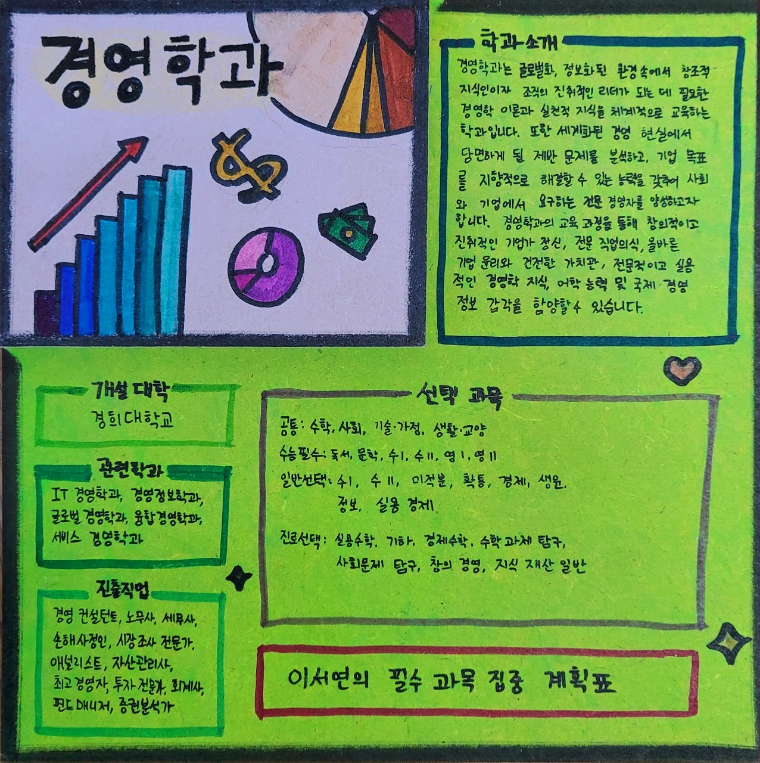 경영학과
학과소개
경영학과는 글로벌화, 정보화된 환경속에서 창조적
지식인이자 조직의 진취적인 리더가 되는 데 필요한
경영학 이론과 실천적 지식을 체계적으로 교육하는
학과입니다. 또한 세계화된 경영 현실에서
당면하게 될 제반 문제를 분석하고, 기업 목표
를 지향적으로 해결할 수 있는 능력을 갖추어 사회
와 기업에서 요구하는 전문 경영자를 양성하고자
합니다. 경영학과의 교육 과정을 통해 창의적이고
진취적인 기업가 정신, 전문 직업의식, 올바른
기업 윤리와 건전한 가치관, 전문적이고 실용
적인 경영학 지식, 어학 능력 및 국제 경영
정보 감각을 함양할 수 있습니다.
개설 대학
경희대학교
관련학과
IT 경영학과, 경영정보학과,
글로벌 경영학과, 융합경영학과,
서비스 경영학과
진출직업
경영 컨설턴트, 노무사, 세무사,
손해사정인, 시장조사 전문가,
애널리스트, 자산관리사,
최고경영자, 투자 전문가, 회계사,
펀드매니저, 증권분석가
선택 과목
공통: 수학, 사회, 기술·가정, 생활·교양
수능필수: 독서, 문학, 수I, 수II, 영I, 영II
일반선택: 수I, 수II, 미적분, 확통, 경제, 생윤,
정보, 실용 경제
진로선택: 실용수학, 기하, 경제수학, 수학 과제 탐구,
사회문제 탐구, 창의 경영, 지식 재산 일반
이서연의 필수 과목 집중 계획표